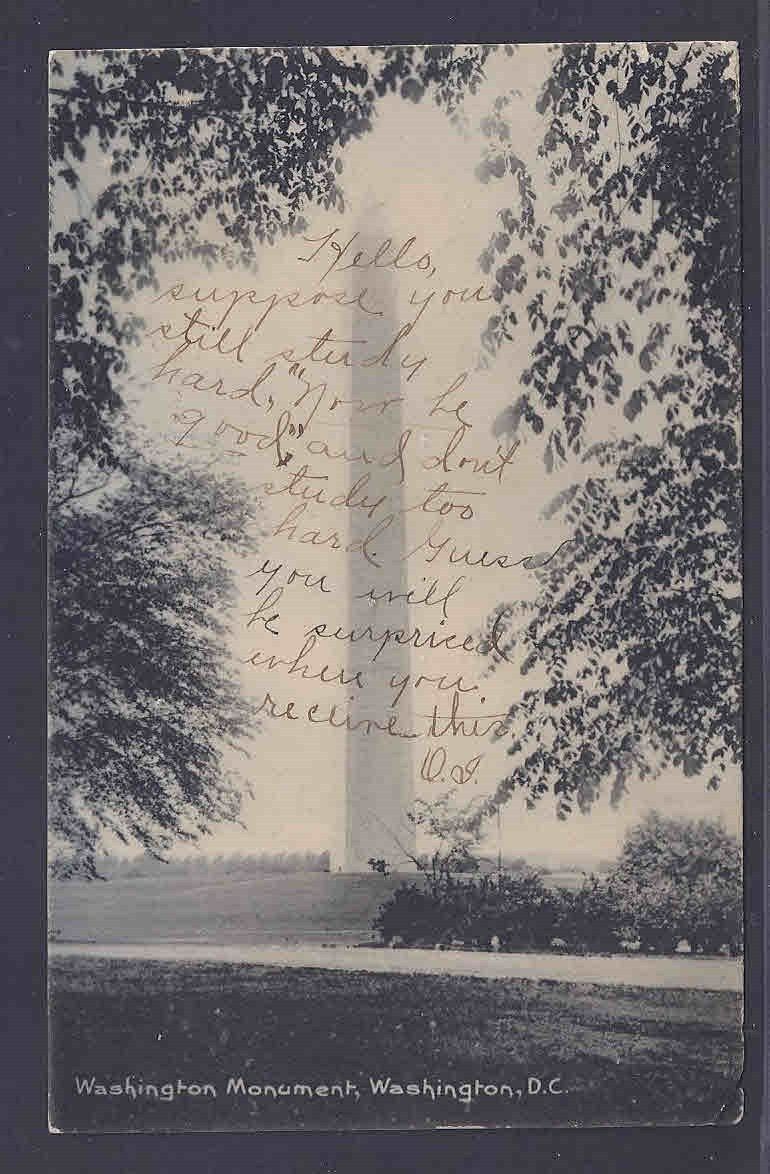 Hello,
suppose you
still study
hard, "Now be
good," and don't
study too
hard. Guess
you will
be surprised
when you
receive this.
O.I.
Washington Monument, Washington, D.C.